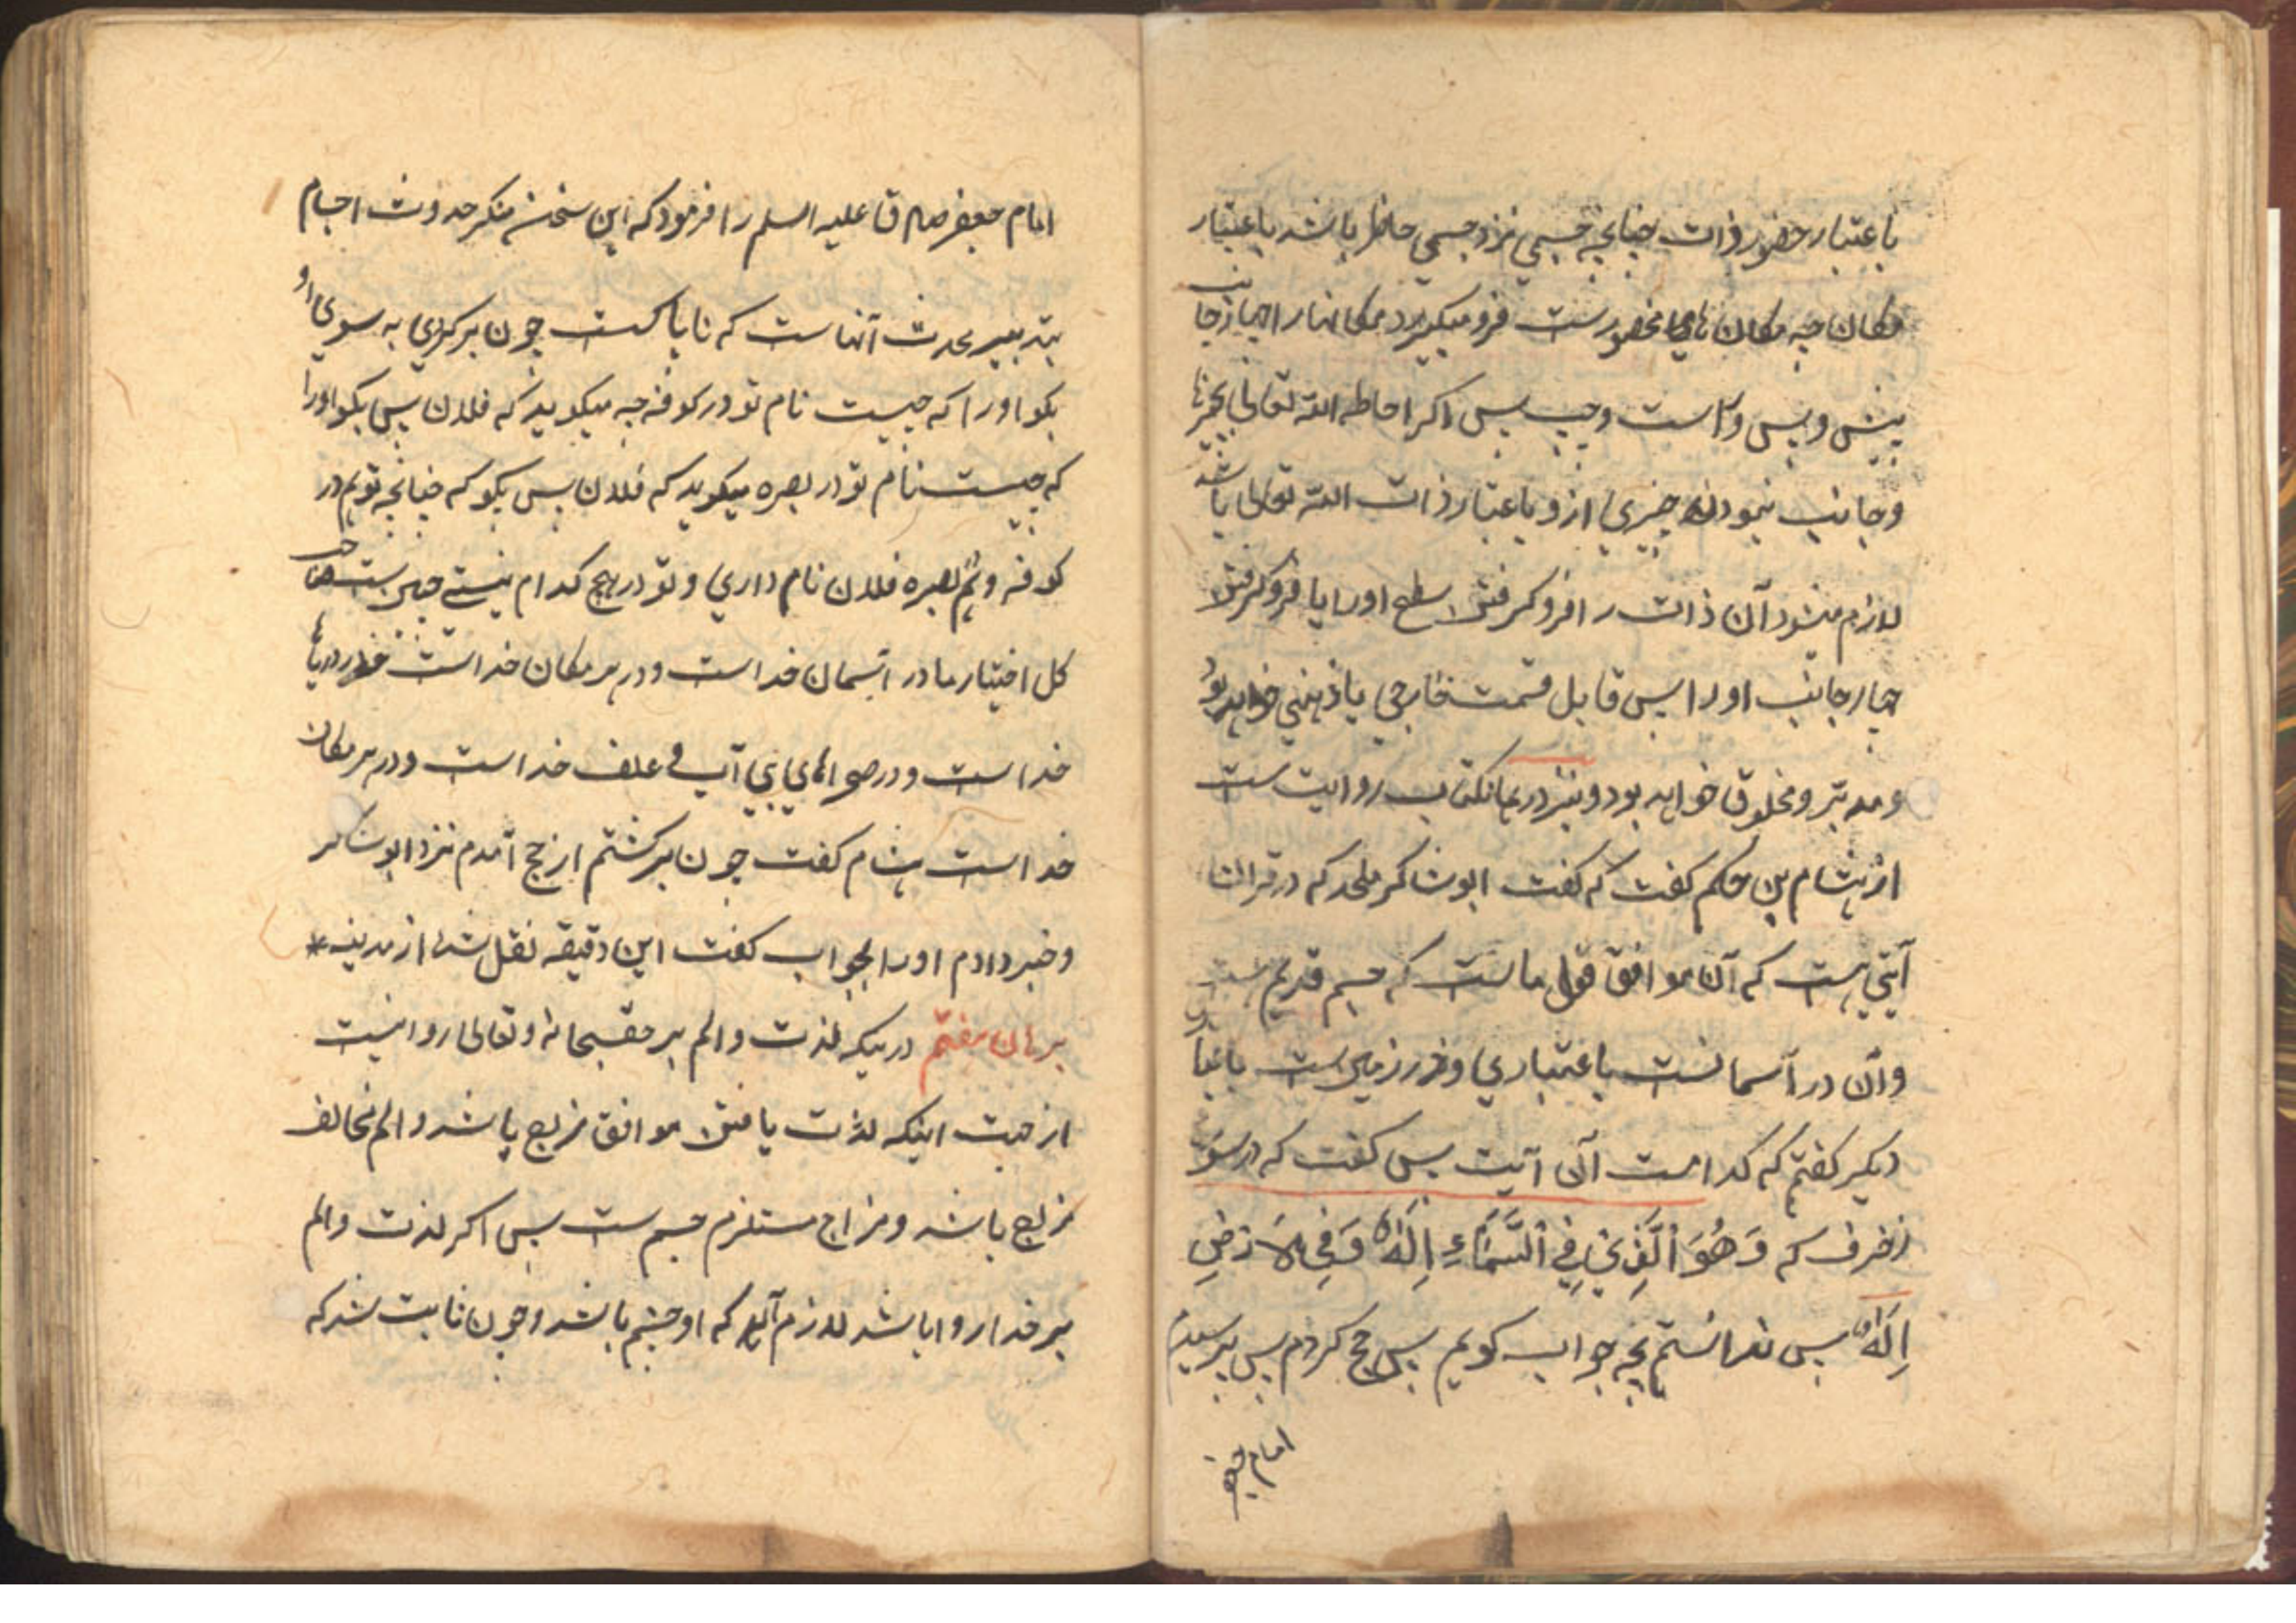 باعتبار حضور ذات چنانچه جسمي نزد جسمي حاضر باشد باعتبار
مكان چه مكان محصورست فرو ميكيرد مكانها را چهار جانب
پيش و پس و راست و چپ پس اكر احاطه الله تعالي بچيزها
و جانب نمودن چيزي ازو باعتبار ذات الله تعالي باشد
لازم ميشود آن ذات را فروكرفتن سطح او را يا فروكرفتن
چهار جانب او را پس قابل قسمت خارجي يا ذهني خواهد بود
و مدبّر و مخلوق خواهد بود و نيز در همانكتاب روايت ست
از هشام بن حكم كفت كه كفت ابو شاكر ملحد كه در قران
آيتي هست كه آن موافق قول ماست كه جسم قديم هست
و آن در آسمانست باعتباري و در زمين ست باعتباري
ديكر كفتم كه كدامست آن آيت پس كفت كه در سوره
زخرف كه وَهُوَ الَّذِي فِي السَّمَاءِ اِلَهٌ وَفِي الاَرْضِ
اِلَهٌ پس ندانستم بچه جواب كويم پس حج كردم پس پرسيدم
امام جعفر
امام جعفر صادق عليه السلم را فرمود كه اين سخن منكر حدوث اجسام
بتدبير محدث آنهاست كه ناپاكست چون بركردي به سوي او
بكو او را كه چيست نام تو در كوفه چه ميكويد كه فلان پس بكو او را
كه چيست نام تو در بصره ميكويد كه فلان پس بكو كه چنانچه تو هم در
كوفه و هم بصره فلان نام داري و تو در هيچ كدام نيستي چنين ست صاحب
كل اختيار ما در آسمان خداست و در هر مكان خداست در درياها
خداست و در صحراهاي بي آب و علف خداست و در هر مكان
خداست هشام كفت چون بركشتم از حج آمدم نزد ابو شاكر
و خبر دادم او را بجواب كفت اين دقيقه نقل شد از مدينه *
برهان هفتم در ينكه لذت و الم بر حقسبحانه و تعالي روا نيست
از جهت اينكه لذت يافتن موافق مزاج باشد و الم مخالف
مزاج باشد و مزاج مستلزم جسم ست پس اكر لذت و الم
بر خدا روا باشد لازم آيد كه او جسم باشد و چون ثابت شد كه